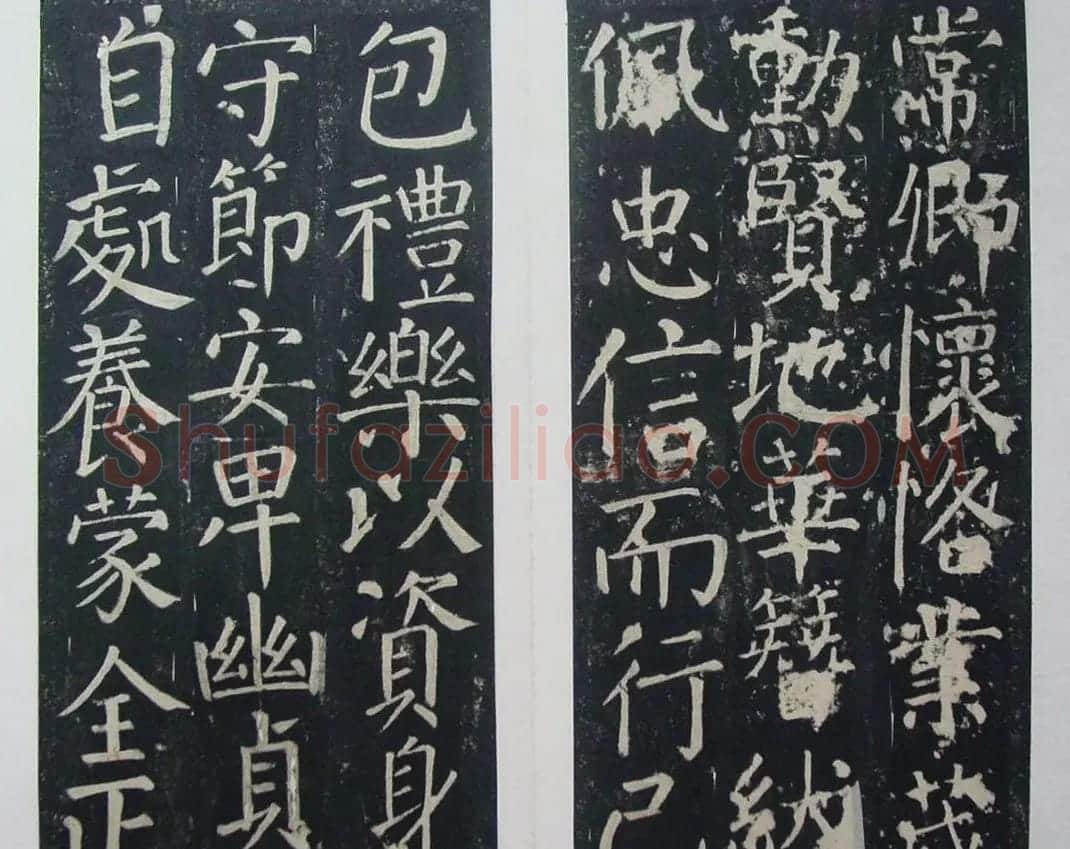 常卿懷恪業茂
勳賢地華簪紱
佩忠信而行己
包禮樂以資身
守節安卑幽貞
自處養蒙全正
Shufaziliao.COM